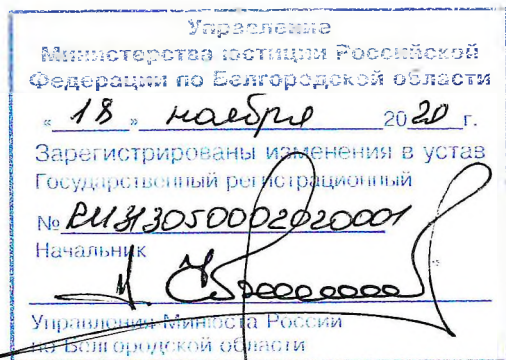 Управление
Министерства юстиции Российской
Федерации по Белгородской области
« 18 » ноября 2020 г.
Зарегистрированы изменения в устав
Государственный регистрационный
№ RU313050002020001
Начальник
Управления Минюста России
по Белгородской области